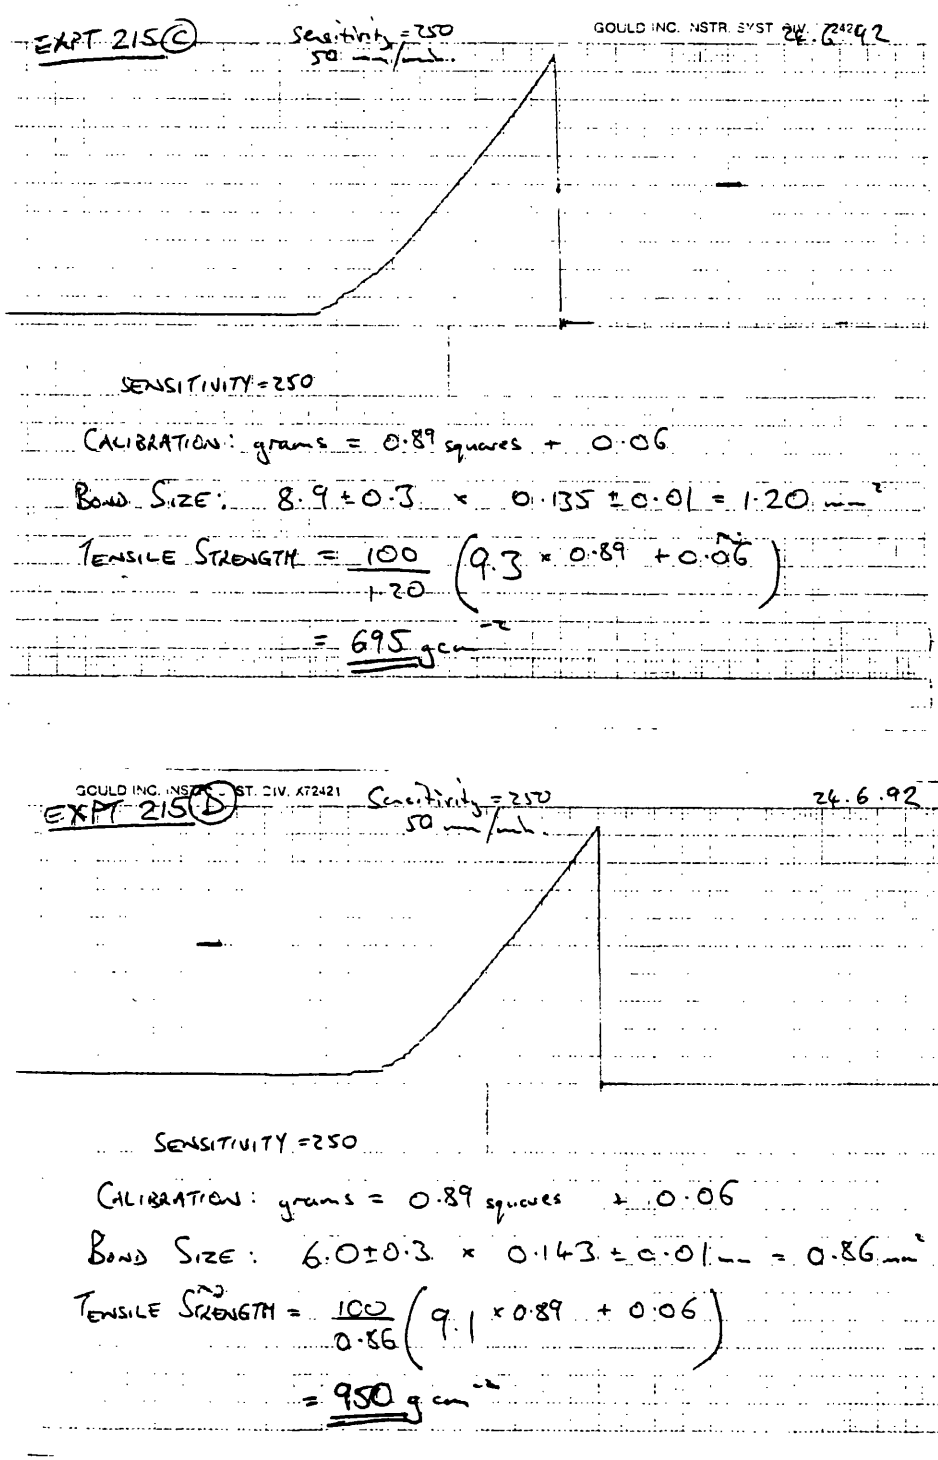 EXPT 215 C sensitivity = 250 GOULD INC. INSTR. SYST. DIV. 24.6.92
50 mm/min.
SENSITIVITY = 250
CALIBRATION: grams = 0.89 squares + 0.06
BOND SIZE: 8.9 ± 0.3 × 0.135 ± 0.01 = 1.20 mm²
TENSILE STRENGTH = 100/1.20 (9.3 × 0.89 + 0.06)
= 695 g cm⁻²
GOULD INC. ST. DIV. X72421
EXPT 215 D Sensitivity = 250 24.6.92
50 mm/min.
SENSITIVITY = 250
CALIBRATION: grams = 0.89 squares + 0.06
BOND SIZE: 6.0 ± 0.3 × 0.143 ± 0.01 mm = 0.86 mm²
TENSILE STRENGTH = 100/0.86 (9.1 × 0.89 + 0.06)
= 950 g cm⁻²